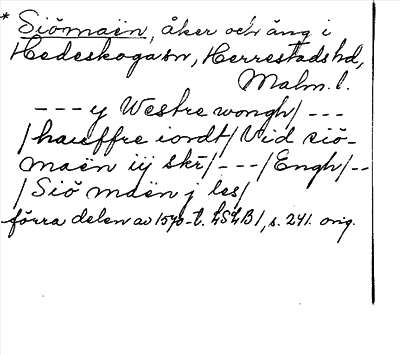 * Siömaën, åker och äng i
Hedeskoga sn, Herrestads hd,
Malm. l.
--- y Westre wongh/ ---
/hauffre iordt/ Vid siö-
maën iij skr̄/ --- /Engh/ --
/Siö maën j les/
förra delen av 1570-t. LSLB 1, s. 241. orig.